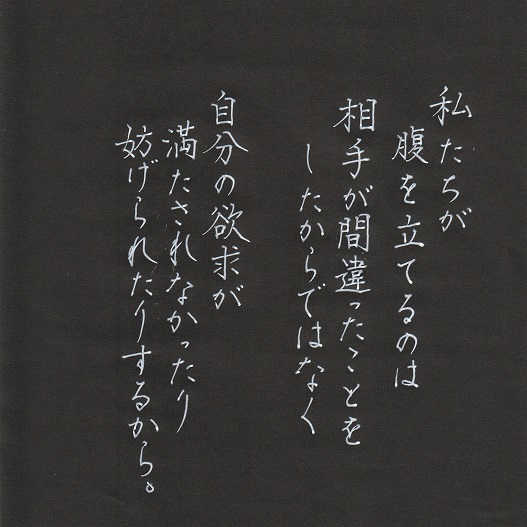 私たちが
腹を立てるのは
相手が間違ったことを
したからではなく
自分の欲求が
満たされなかったり
妨げられたりするから。